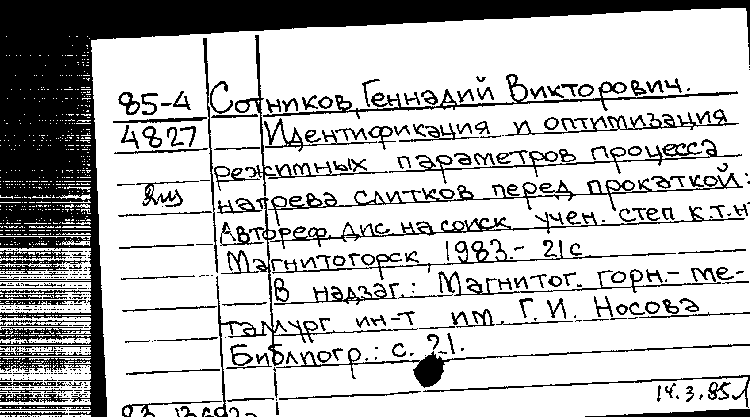 85-4 Сотников, Геннадий Викторович.
4827 Идентификация и оптимизация
режимных параметров процесса
нагрева слитков перед прокаткой:
Автореф. дис. на соиск. учен. степ. к.т.н
Магнитогорск, 1983.- 21с.
В надзаг.: Магнитог. горн.- ме-
таллург. ин-т им. Г. И. Носова
Библиогр.: с. 21.
14.3.85